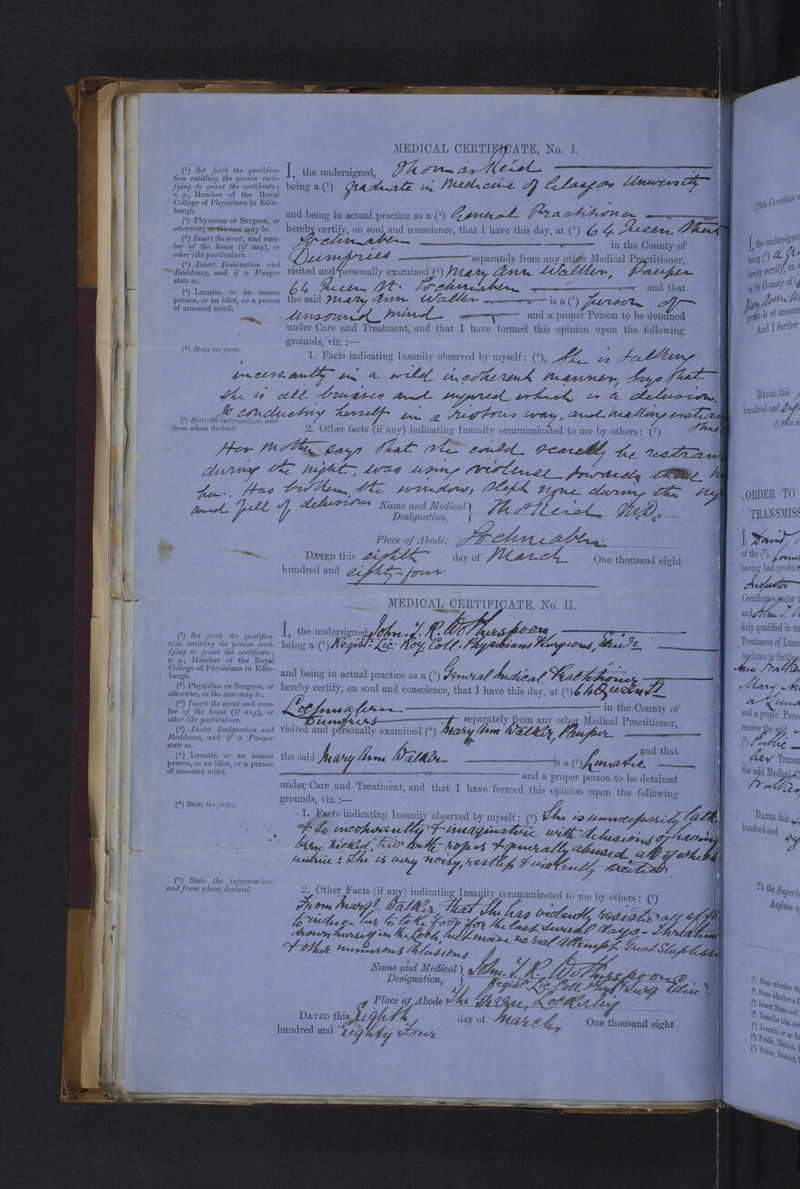 MEDICAL CERTIFICATE, No. I.
(¹) Set forth the qualifica-
tion entitling the person certi-
fying to grant the certificate;
e. g., Member of the Royal
College of Physicians in Edin-
burgh.
(²) Physician or Surgeon, or
otherwise, as the case may be.
(³) Insert the street, and num-
ber of the house (if any), or
other like particulars.
(⁴) Insert Designation and
Residence, and if a Pauper
state so.
(⁵) Lunatic, or an insane
person, or an idiot, or a person
of unsound mind.
(⁶) State the facts.
(⁷) State the information, and
from whom derived.
I, the undersigned, Thomas Reid
being a (¹) Graduate in Medicine of Glasgow University
and being in actual practice as a (²) General Practitioner
hereby certify, on soul and conscience, that I have this day, at (³) 64 Queen Street
Lochmaben in the County of
Dumfries separately from any other Medical Practitioner,
visited and personally examined (⁴) Mary Ann Walker, Pauper
64 Queen St. Lochmaben and that
the said Mary Ann Walker is a (⁵) person of
unsound mind and a proper Person to be detained
under Care and Treatment, and that I have formed this opinion upon the following
grounds, viz. :—
1. Facts indicating Insanity observed by myself: (⁶), She is talking
incessantly in a wild incoherent manner, says that
she is all bruises and injured which is a delusion.
Is conducting herself in a riotous way, and making
2. Other facts (if any) indicating Insanity communicated to me by others: (⁷)
Her mother says that she could scarcely be
during the night, was using violence towards
her. Has broken the window, slept none during the
and full of delusions
Name and Medical Designation, Thos Reid M.D.
Place of Abode, Lochmaben
DATED this eighth day of March One thousand eight
hundred and eighty-four
MEDICAL CERTIFICATE, No. II.
(¹) Set forth the qualifica-
tion entitling the person certi-
fying to grant the certificate;
e. g., Member of the Royal
College of Physicians in Edin-
burgh.
(²) Physician or Surgeon, or
otherwise, as the case may be.
(³) Insert the street and num-
ber of the house (if any), or
other like particulars.
(⁴) Insert Designation and
Residence, and if a Pauper
state so.
(⁵) Lunatic, or an insane
person, or an idiot, or a person
of unsound mind.
(⁶) State the facts.
(⁷) State the information,
and from whom derived.
I, the undersigned John. J. R. Wotherspoon
being a (¹) Regist. Lic. Roy. Coll. Physicians & Surgeons, Edinr
and being in actual practice as a (²) General Medical Practitioner
hereby certify, on soul and conscience, that I have this day, at (³) 64 Queen St
Lochmaben in the County of
Dumfries separately from any other Medical Practitioner,
visited and personally examined (⁴) Mary Ann Walker, Pauper
and that
the said Mary Ann Walker is a (⁵) Lunatic
and a proper person to be detained
under Care and Treatment, and that I have formed this opinion upon the following
grounds, viz. :—
1. Facts indicating Insanity observed by myself: (⁶) She is
& so incoherently & imaginative with delusions of having
been kicked, tied with ropes & generally abused all of which
untrue : She is very noisy, restless & violently excited
2. Other Facts (if any) indicating Insanity communicated to me by others: (⁷)
From Margt. Walker that She has violently resisted all
to induce her to take food for the last several days -
drown herself in the Loch, but made no real attempt.
& other numerous delusions
Name and Medical Designation, John. J. R. Wotherspoon
Regist. Lic. Coll. Phys. & Surg Edinr.
Place of Abode The Lockerbie
DATED this Eighth day of March One thousand eight
hundred and Eighty Four
I, the undersigned
being (¹) a
hereby certify, on
in the County of
Mary Ann
person is of unsound
And I further
DATED this
hundred and
ORDER TO
TRANSMISS
I, David,
of the (²)
having had produced
Certificates under t
and John J.
duly qualified in te
Treatment of Luna
Asylums in Scotlan
Ann Walker
and a proper Perso
receive the said
the said Medical
DATED this
hundred and
To the Superi
Asylum o